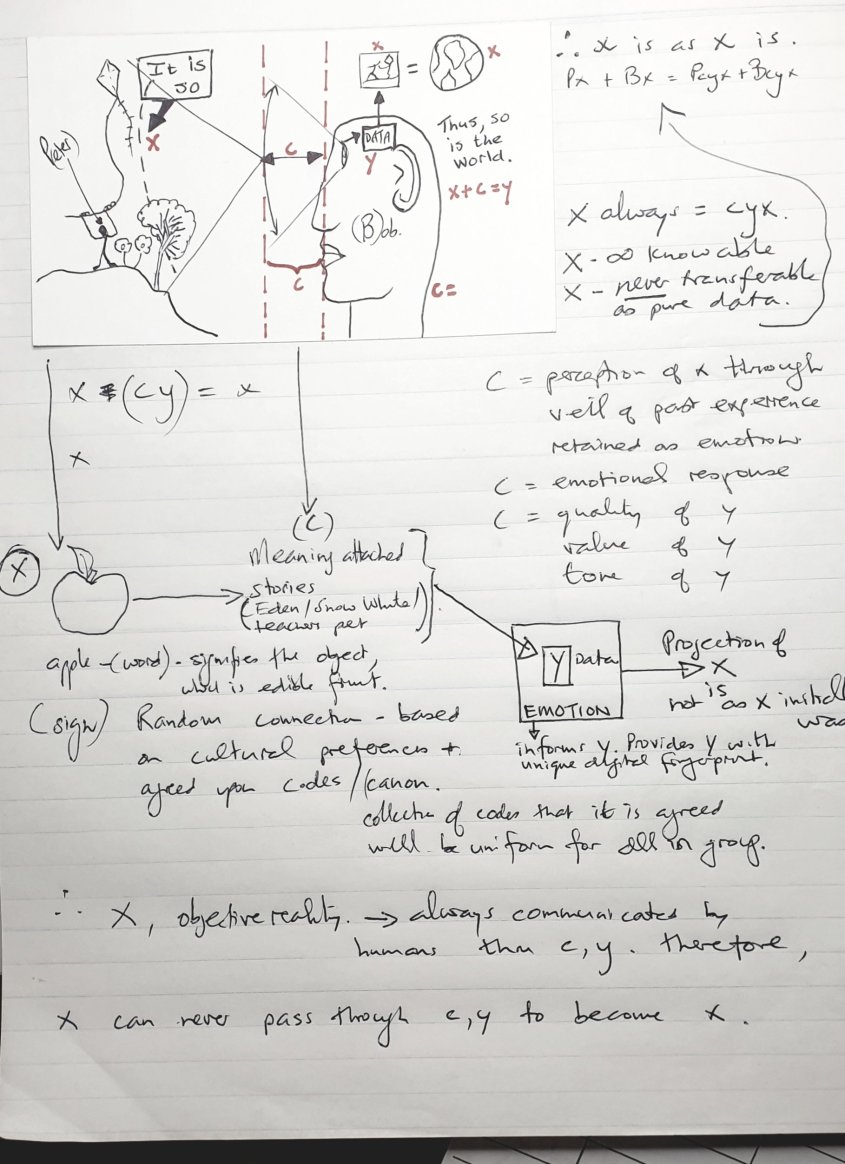 It is
so
X
P(eter)
C
C
DATA
Y
X
=
X
(B)ob.
Thus, so
is the
world.
X+C=Y
C=
∴ x is as x is.
Px + Bx = Pcyx + Bcyx
X always = cyx.
X - ∞ knowable
X - never transferable
as pure data.
X (cy) = x
x
C = perception of x through
veil of past experience
retained as emotion
C = emotional response
C = quality of Y
value of Y
tone of Y
X
(C)
Meaning attached
stories
(Eden/Snow White/
teacher pet
apple-(word)- signifies the object,
which is edible fruit.
Y Data
EMOTION
Projection of
X
is
not as X initially
was
informs Y. Provides Y with
unique digital fingerprint.
(sign) Random connection - based
on cultural preferences +
agreed upon codes/canon.
collection of codes that it is agreed
will be uniform for all in group.
∴ X, objective reality. → always communicated by
humans thru c, y. therefore,
X can never pass though c,y to become X.